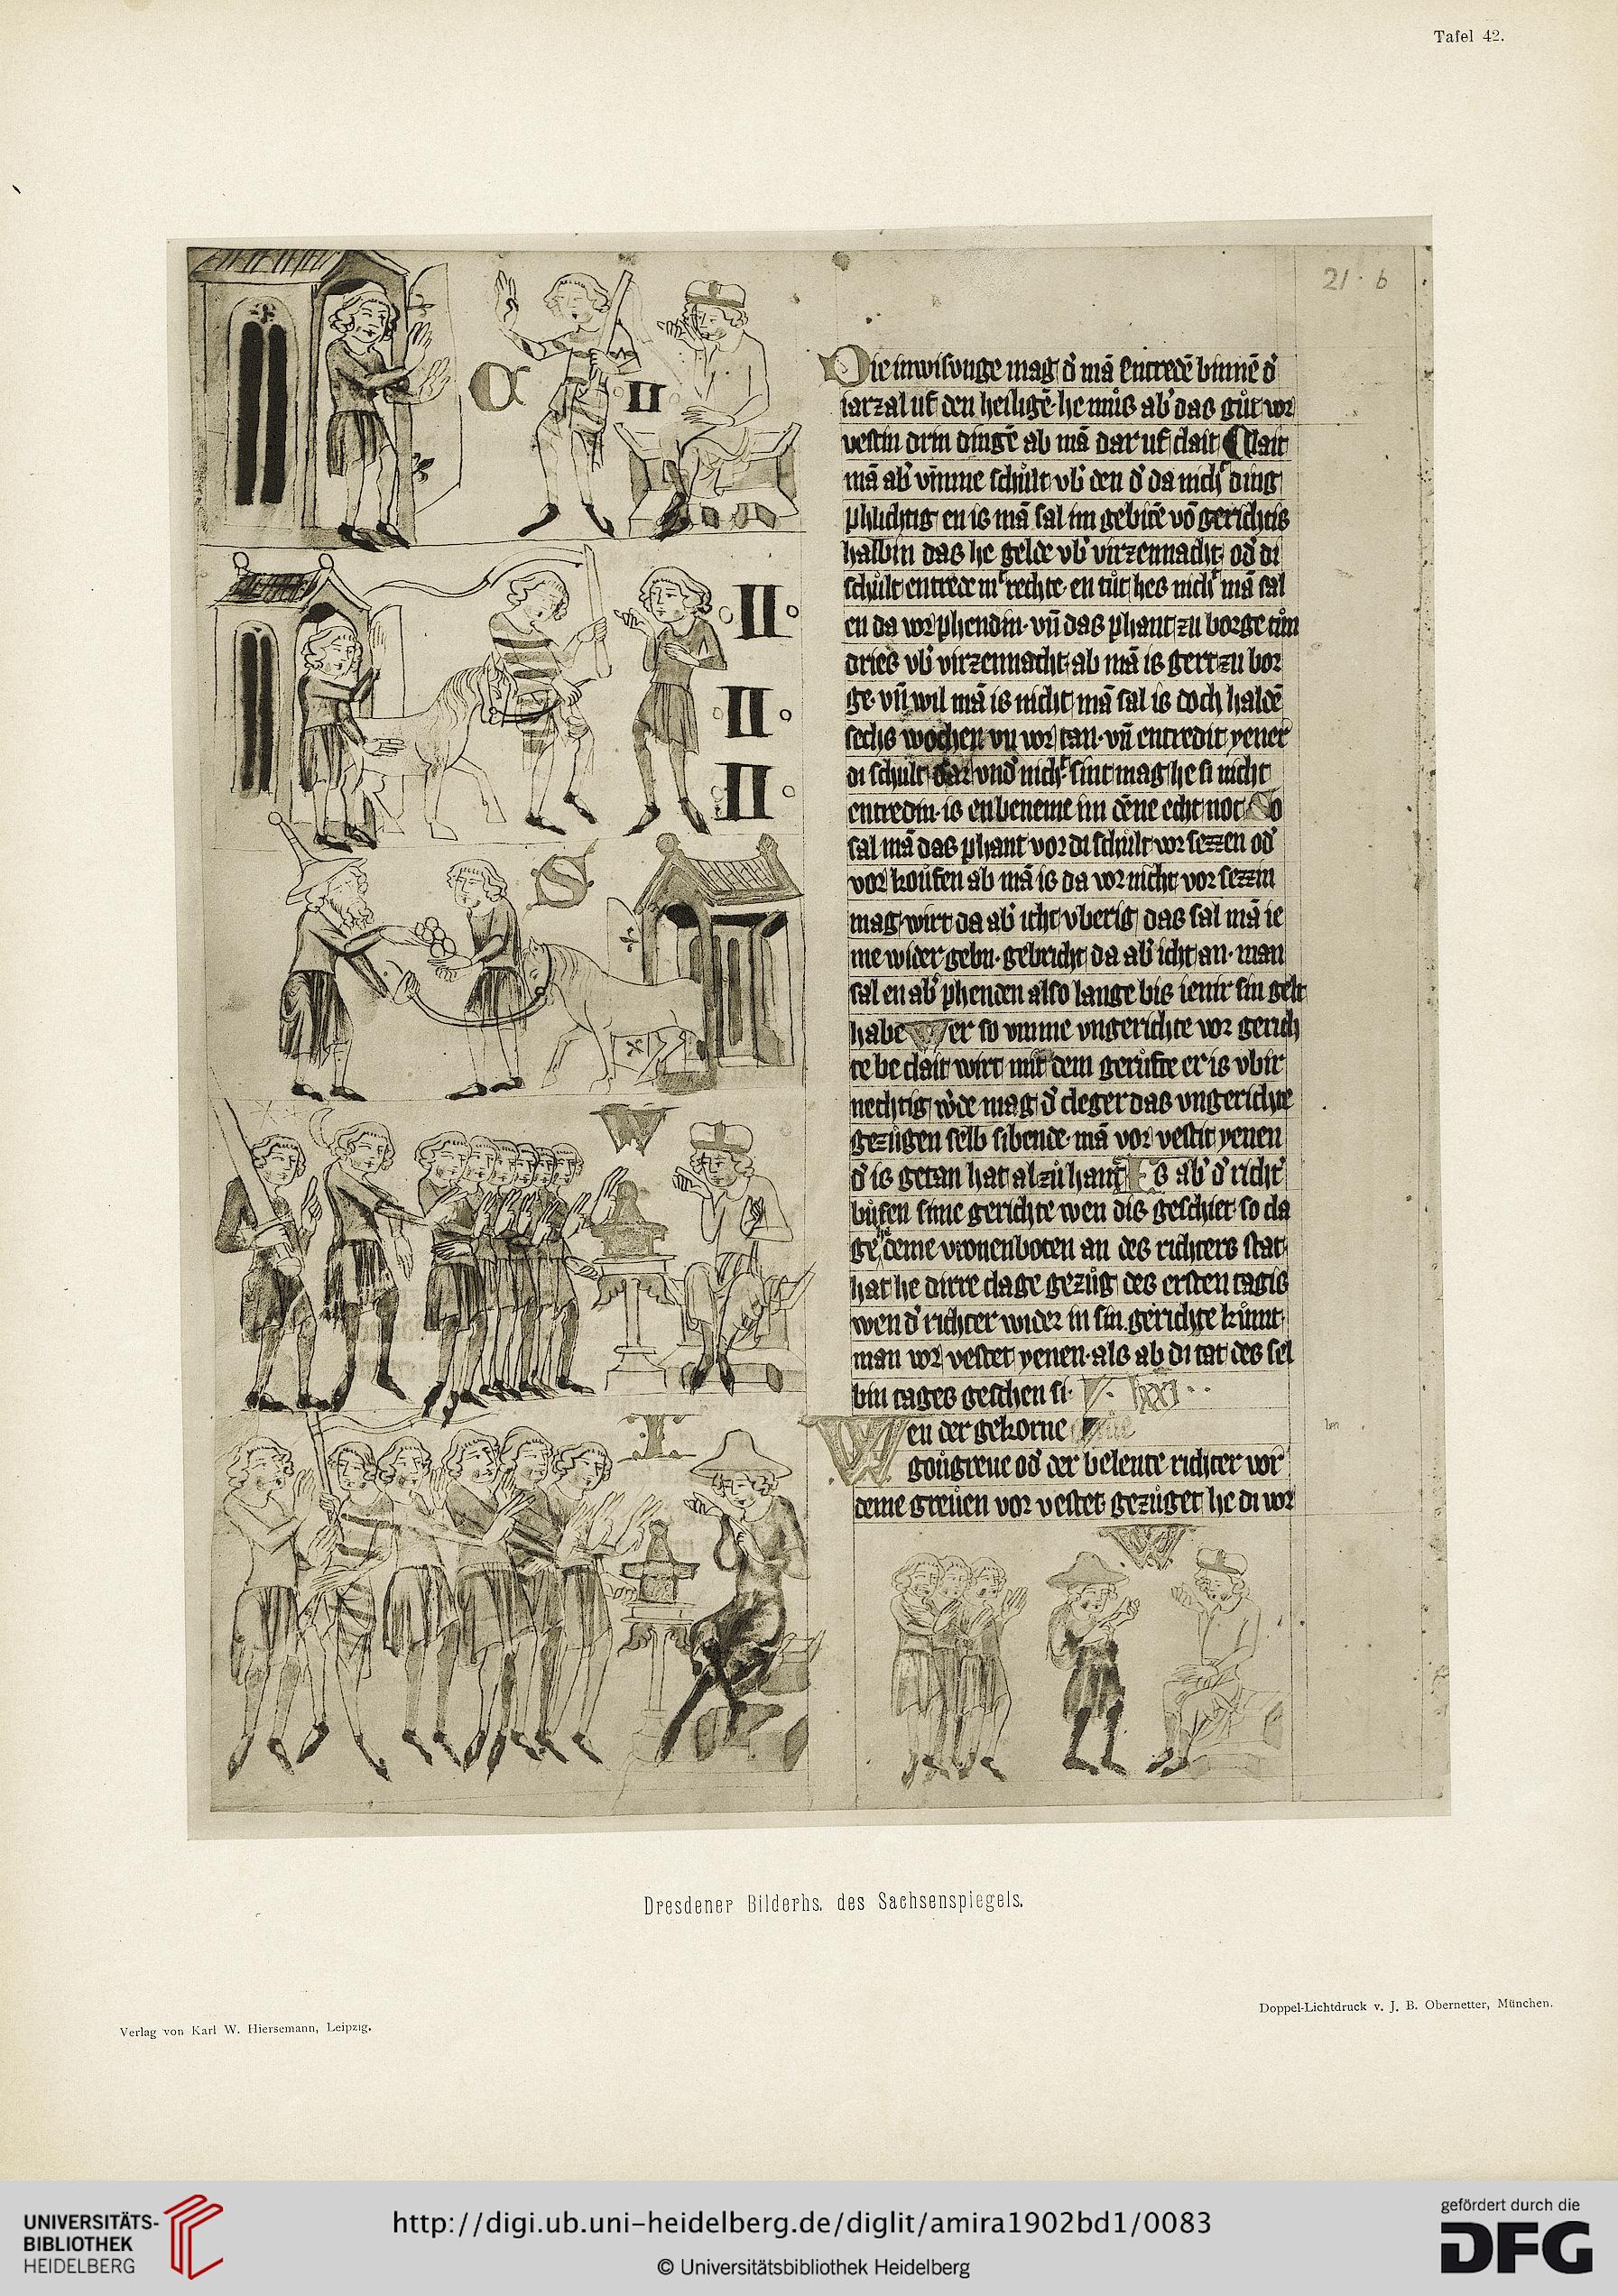 Tafel 42.
21. b
Die inwisunge mag d' mā entredē binnē d'
iarzal uf den heiligē· he mus ab' das gůt vor
vestin drin dingē ab mā dar uf clait Clait
mā ab' vmme schult vb' den d' da nich ding
phlichtig en is mā sal im gebitē vō gerichtis
halbin das he gelde vb' virzennacht od' di
schůlt entrede mᵗ rechte· en tůt hes nichᵗ mā sal
en da vor phendin· vn̄ das phant zu borge tůn
dries vb' virzennacht· ab mā is gert zu bor
ge· vn̄ wil mā is nicht mā sal is doch haldē
sechs wochen vn vor tan· vn̄ entredit yener
di schult dar vnd' nichᵗ sint mag he si nicht
entredin· is en beneme im dēne echt not So
sal mā das phant vor di schůlt vor sezzen od'
vor koufen ab mā is da vor nicht vor sezzin
mag· wirt da ab' icht vberig das sal mā ie
me wider gebn· gebricht da ab' icht an· man
sal en ab' phenden also lange bis ienir sin gelt
habe Wer so vmme vngerichte vor gerich
te be clait wirt mit dem gerufte er is vbir
nechtig w'de mag d' cleger das vngerichte
gezůgen selb sibende· mā vor vestit yenen
d' is getan hat alzů hant Es ab' d' richt'
bůsen sime gerichte wen dis geschiet so cla
ge he deme vronenboten an des richters stat·
hat he dirre clage gezůg des ersten tagis
wen d' richter wider in sin gerichte kůmt
man vor vestet yenen· als ab di tat des sel
bin tages geschen si· lxxi··
Wen der gekorne
goůgreue od' der belente richter vor
deme greuen vor vestet gezůget he di vor
C
II
II
II
II
S
W
I
W
Dresdener Bilderhs. des Sachsenspiegels.
Verlag von Karl W. Hiersemann, Leipzig.
Doppel-Lichtdruck v. J. B. Obernetter, München.
UNIVERSITÄTS-
BIBLIOTHEK
HEIDELBERG
http://digi.ub.uni-heidelberg.de/diglit/amira1902bd1/0083
© Universitätsbibliothek Heidelberg
gefördert durch die
DFG